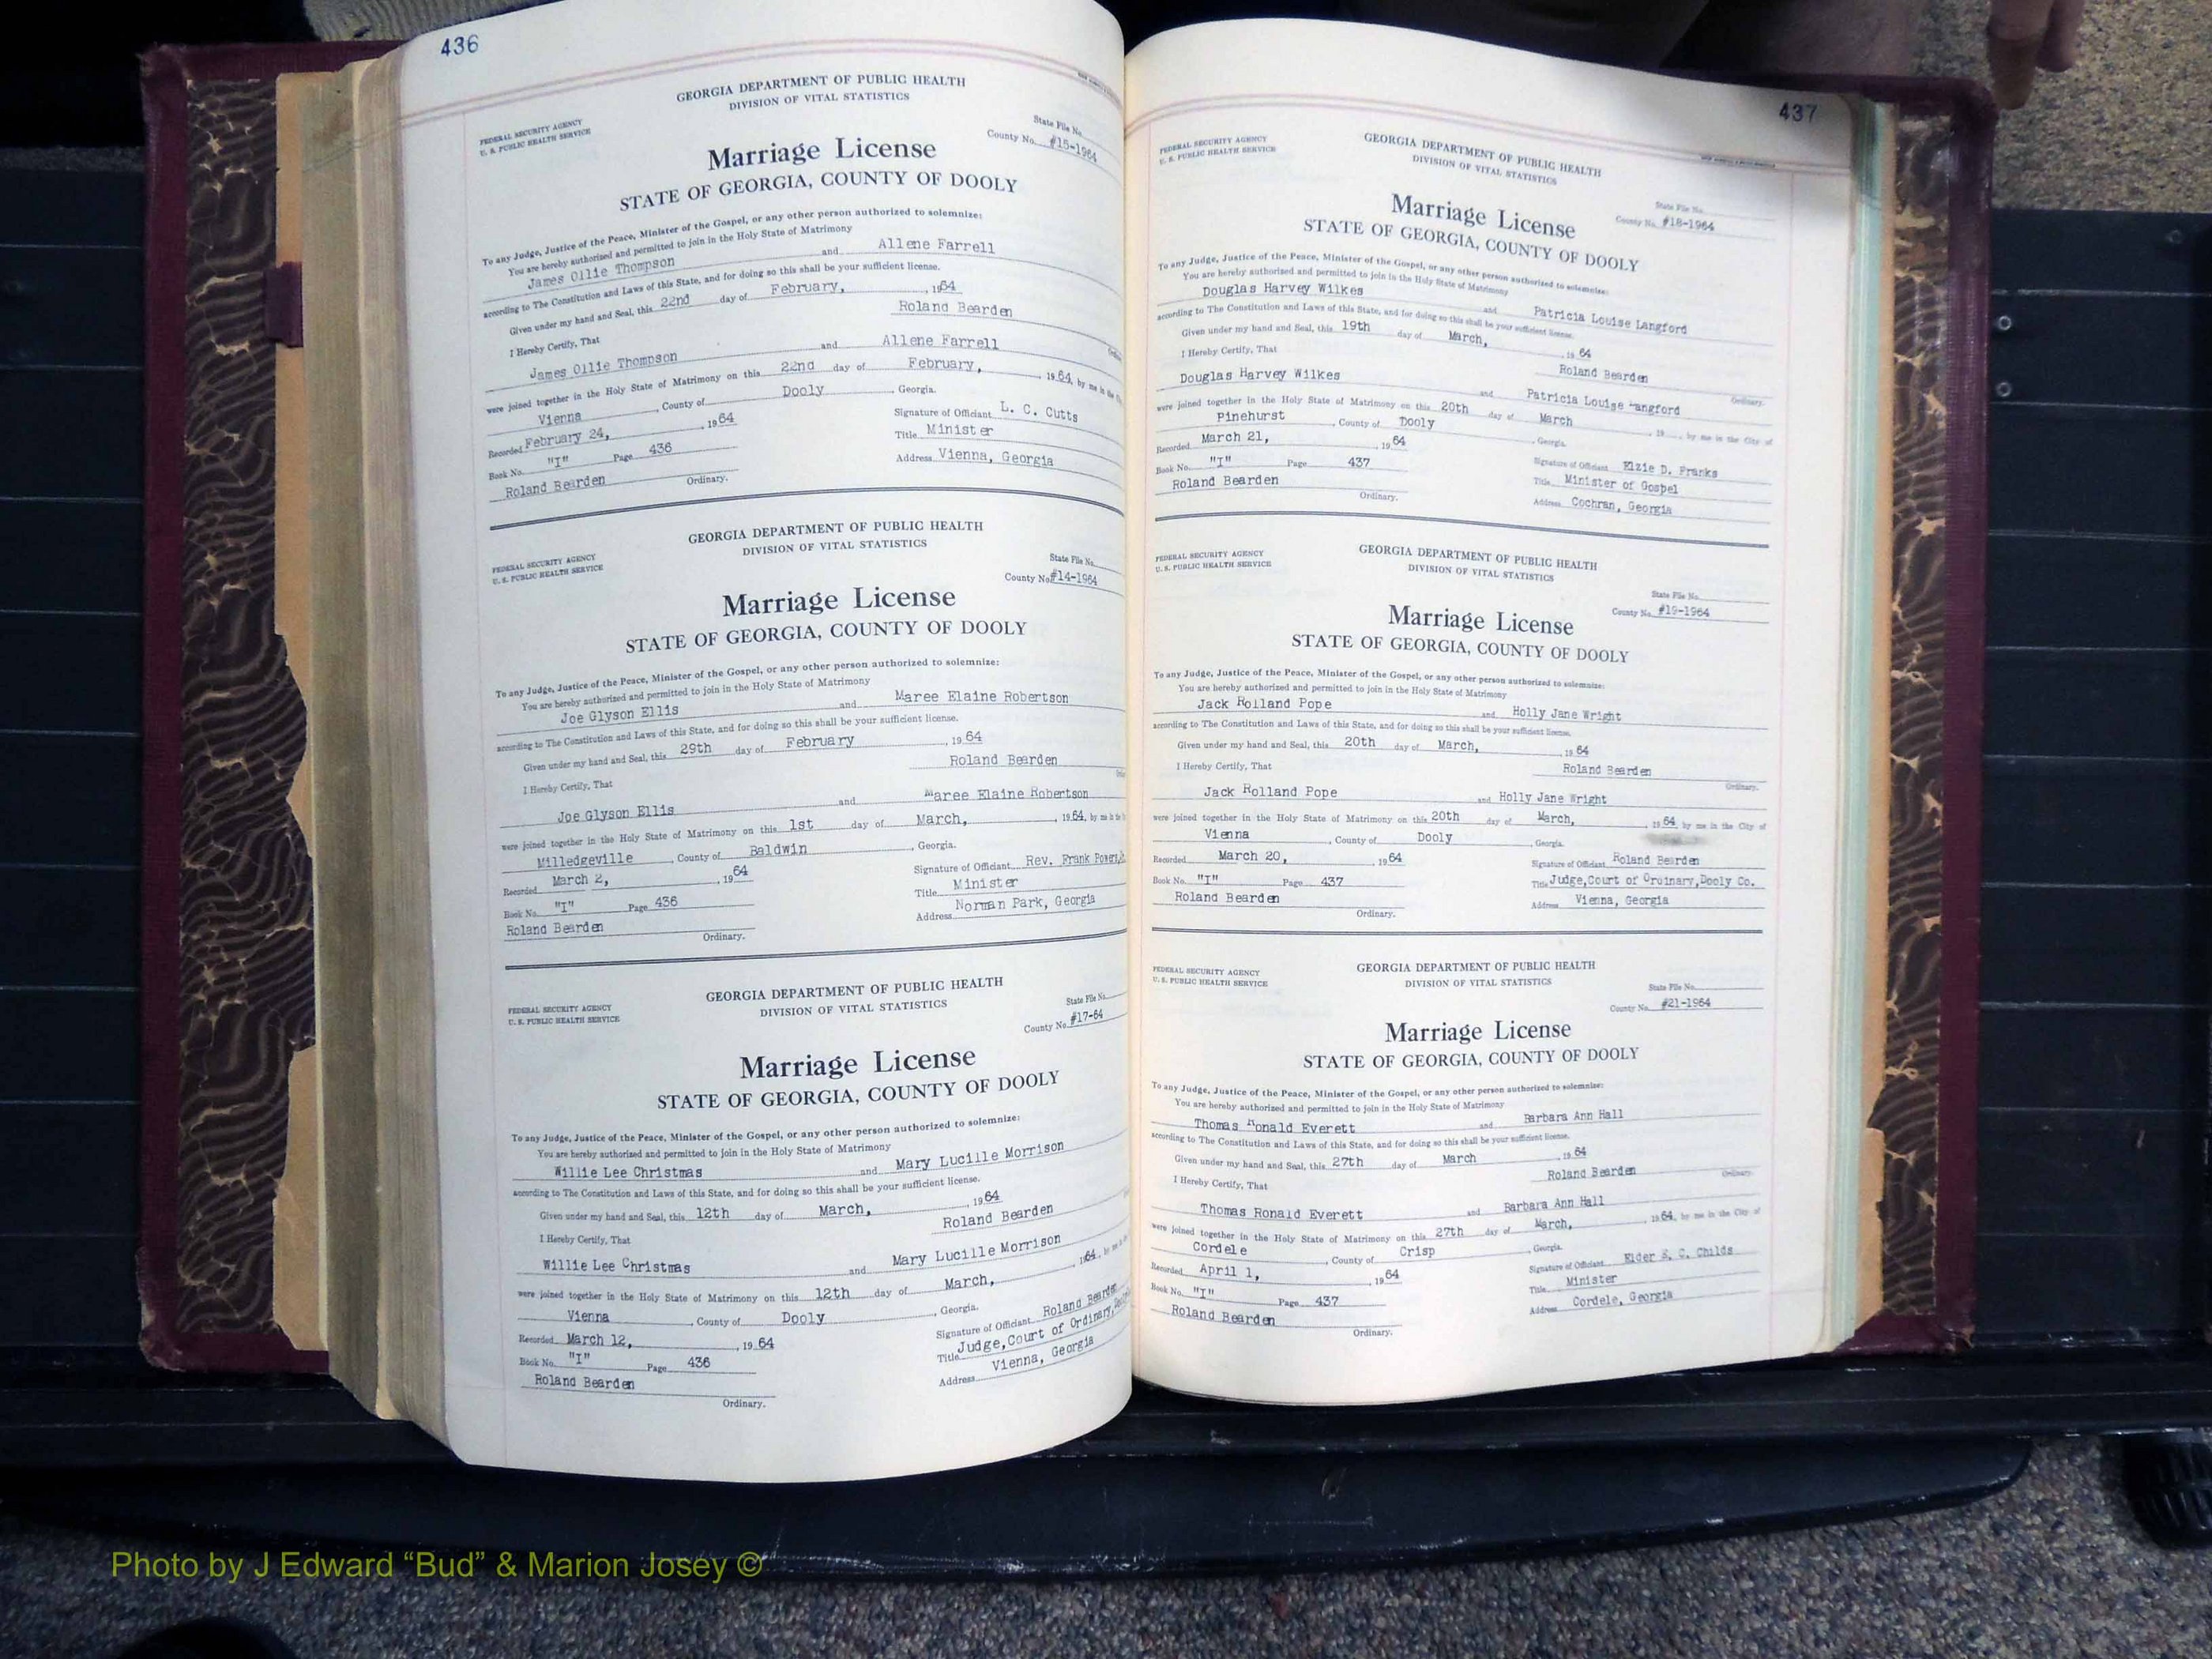 436
GEORGIA DEPARTMENT OF PUBLIC HEALTH
DIVISION OF VITAL STATISTICS
FEDERAL SECURITY AGENCY
U. S. PUBLIC HEALTH SERVICE
State File No.
County No. #15-1964
Marriage License
STATE OF GEORGIA, COUNTY OF DOOLY
To any Judge, Justice of the Peace, Minister of the Gospel, or any other person authorized to solemnize:
You are hereby authorized and permitted to join in the Holy State of Matrimony
James Ollie Thompson and Allene Farrell
according to The Constitution and Laws of this State, and for doing so this shall be your sufficient license.
Given under my hand and Seal, this 22nd day of February, 1964
Roland Bearden
I Hereby Certify, That
James Ollie Thompson and Allene Farrell
were joined together in the Holy State of Matrimony on this 22nd day of February, 1964, by me in the
Vienna, County of Dooly, Georgia.
Recorded February 24, 1964
Signature of Officiant L. C. Cutts
Book No. "I" Page 436
Title Minister
Roland Bearden
Address Vienna, Georgia
Ordinary.
GEORGIA DEPARTMENT OF PUBLIC HEALTH
DIVISION OF VITAL STATISTICS
FEDERAL SECURITY AGENCY
U. S. PUBLIC HEALTH SERVICE
State File No.
County No. #14-1964
Marriage License
STATE OF GEORGIA, COUNTY OF DOOLY
To any Judge, Justice of the Peace, Minister of the Gospel, or any other person authorized to solemnize:
You are hereby authorized and permitted to join in the Holy State of Matrimony
Joe Glyson Ellis and Maree Elaine Robertson
according to The Constitution and Laws of this State, and for doing so this shall be your sufficient license.
Given under my hand and Seal, this 29th day of February, 1964
Roland Bearden
I Hereby Certify, That
Joe Glyson Ellis and Maree Elaine Robertson
were joined together in the Holy State of Matrimony on this 1st day of March, 1964, by me in the
Milledgeville, County of Baldwin, Georgia.
Recorded March 2, 1964
Signature of Officiant Rev. Frank Powers
Book No. "I" Page 436
Title Minister
Roland Bearden
Address Norman Park, Georgia
Ordinary.
GEORGIA DEPARTMENT OF PUBLIC HEALTH
DIVISION OF VITAL STATISTICS
FEDERAL SECURITY AGENCY
U. S. PUBLIC HEALTH SERVICE
State File No.
County No. #17-64
Marriage License
STATE OF GEORGIA, COUNTY OF DOOLY
To any Judge, Justice of the Peace, Minister of the Gospel, or any other person authorized to solemnize:
You are hereby authorized and permitted to join in the Holy State of Matrimony
Willie Lee Christmas and Mary Lucille Morrison
according to The Constitution and Laws of this State, and for doing so this shall be your sufficient license.
Given under my hand and Seal, this 12th day of March, 1964
Roland Bearden
I Hereby Certify, That
Willie Lee Christmas and Mary Lucille Morrison
were joined together in the Holy State of Matrimony on this 12th day of March, 1964, by me in
Vienna, County of Dooly, Georgia.
Recorded March 12, 1964
Signature of Officiant Roland Bearden
Book No. "I" Page 436
Title Judge, Court of Ordinary,
Roland Bearden
Address Vienna, Georgia
Ordinary.
437
GEORGIA DEPARTMENT OF PUBLIC HEALTH
DIVISION OF VITAL STATISTICS
FEDERAL SECURITY AGENCY
U. S. PUBLIC HEALTH SERVICE
State File No.
County No. #18-1964
Marriage License
STATE OF GEORGIA, COUNTY OF DOOLY
To any Judge, Justice of the Peace, Minister of the Gospel, or any other person authorized to solemnize:
You are hereby authorized and permitted to join in the Holy State of Matrimony
Douglas Harvey Wilkes and Patricia Louise Langford
according to The Constitution and Laws of this State, and for doing so this shall be your sufficient license.
Given under my hand and Seal, this 19th day of March, 1964
Roland Bearden
I Hereby Certify, That
Ordinary.
Douglas Harvey Wilkes and Patricia Louise Langford
were joined together in the Holy State of Matrimony on this 20th day of March, 19 , by me in the City of
Pinehurst, County of Dooly, Georgia.
Recorded March 21, 1964
Signature of Officiant Elzie D. Franks
Book No. "I" Page 437
Title Minister of Gospel
Roland Bearden
Address Cochran, Georgia
Ordinary.
GEORGIA DEPARTMENT OF PUBLIC HEALTH
DIVISION OF VITAL STATISTICS
FEDERAL SECURITY AGENCY
U. S. PUBLIC HEALTH SERVICE
State File No.
County No. #19-1964
Marriage License
STATE OF GEORGIA, COUNTY OF DOOLY
To any Judge, Justice of the Peace, Minister of the Gospel, or any other person authorized to solemnize:
You are hereby authorized and permitted to join in the Holy State of Matrimony
Jack Rolland Pope and Holly Jane Wright
according to The Constitution and Laws of this State, and for doing so this shall be your sufficient license.
Given under my hand and Seal, this 20th day of March, 1964
I Hereby Certify, That
Roland Bearden
Ordinary.
Jack Rolland Pope and Holly Jane Wright
were joined together in the Holy State of Matrimony on this 20th day of March, 1964 by me in the City of
Vienna, County of Dooly, Georgia.
Recorded March 20, 1964
Signature of Officiant Roland Bearden
Book No. "I" Page 437
Title Judge,Court of Ordinary,Dooly Co.
Roland Bearden
Address Vienna, Georgia
Ordinary.
GEORGIA DEPARTMENT OF PUBLIC HEALTH
DIVISION OF VITAL STATISTICS
FEDERAL SECURITY AGENCY
U. S. PUBLIC HEALTH SERVICE
State File No.
County No. #21-1964
Marriage License
STATE OF GEORGIA, COUNTY OF DOOLY
To any Judge, Justice of the Peace, Minister of the Gospel, or any other person authorized to solemnize:
You are hereby authorized and permitted to join in the Holy State of Matrimony
Thomas Ronald Everett and Barbara Ann Hall
according to The Constitution and Laws of this State, and for doing so this shall be your sufficient license.
Given under my hand and Seal, this 27th day of March 1964
I Hereby Certify, That
Roland Bearden
Ordinary.
Thomas Ronald Everett and Barbara Ann Hall
were joined together in the Holy State of Matrimony on this 27th day of March, 1964, by me in the City of
Cordele, County of Crisp, Georgia.
Recorded April 1, 1964
Signature of Officiant Elder S. C. Childs
Book No. "I" Page 437
Title Minister
Roland Bearden
Address Cordele, Georgia
Ordinary.
Photo by J Edward “Bud” & Marion Josey ©